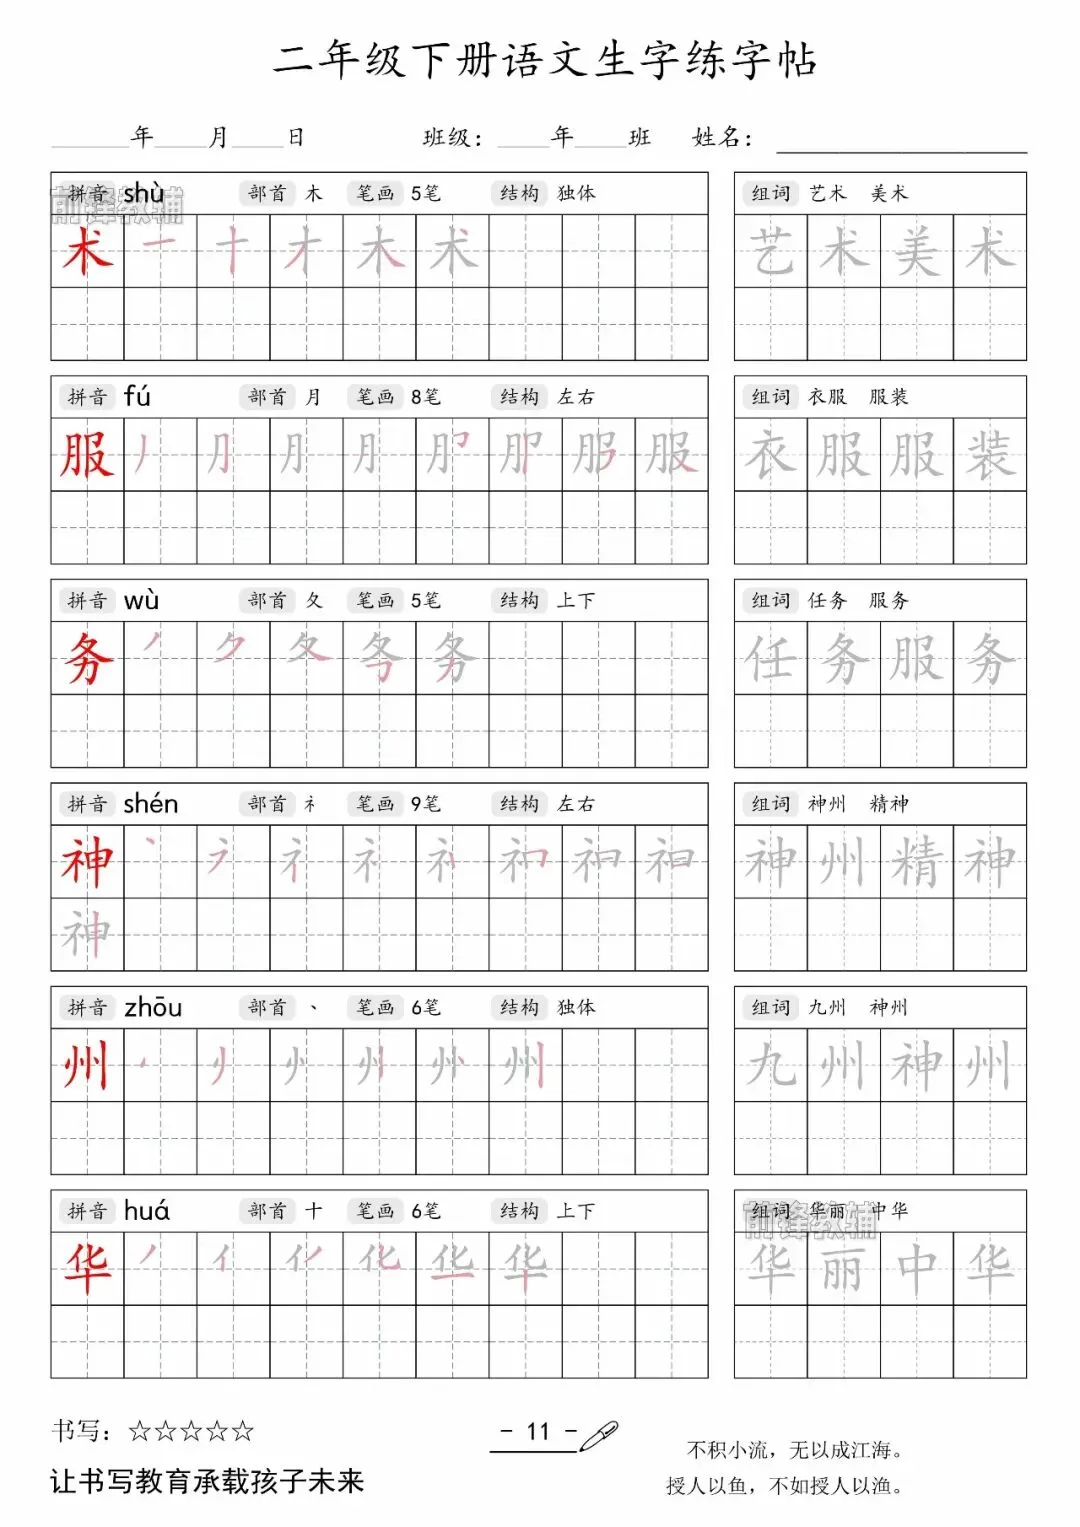 二年级下册语文生字练字帖
____年____月____日 班级：____年____班 姓名：________
拼音 shù 部首 木 笔画 5笔 结构 独体 组词 艺术 美术
前锋教辅
术 一 十 才 木 术 艺 术 美 术
拼音 fú 部首 月 笔画 8笔 结构 左右 组词 衣服 服装
服 丿 服 衣 服 服 装
拼音 wù 部首 夂 笔画 5笔 结构 上下 组词 任务 服务
务 丿 ク 夂 务 任 务 服 务
拼音 shén 部首 礻 笔画 9笔 结构 左右 组词 神州 精神
神 丶 礻 神 州 精 神
神
拼音 zhōu 部首 丶 笔画 6笔 结构 独体 组词 九州 神州
州 丶 州 九 州 神 州
拼音 huá 部首 十 笔画 6笔 结构 上下 组词 华丽 中华
前锋教辅
华 丿 亻 化 华 华 丽 中 华
书写：☆☆☆☆☆
- 11 -
不积小流，无以成江海。
让书写教育承载孩子未来
授人以鱼，不如授人以渔。